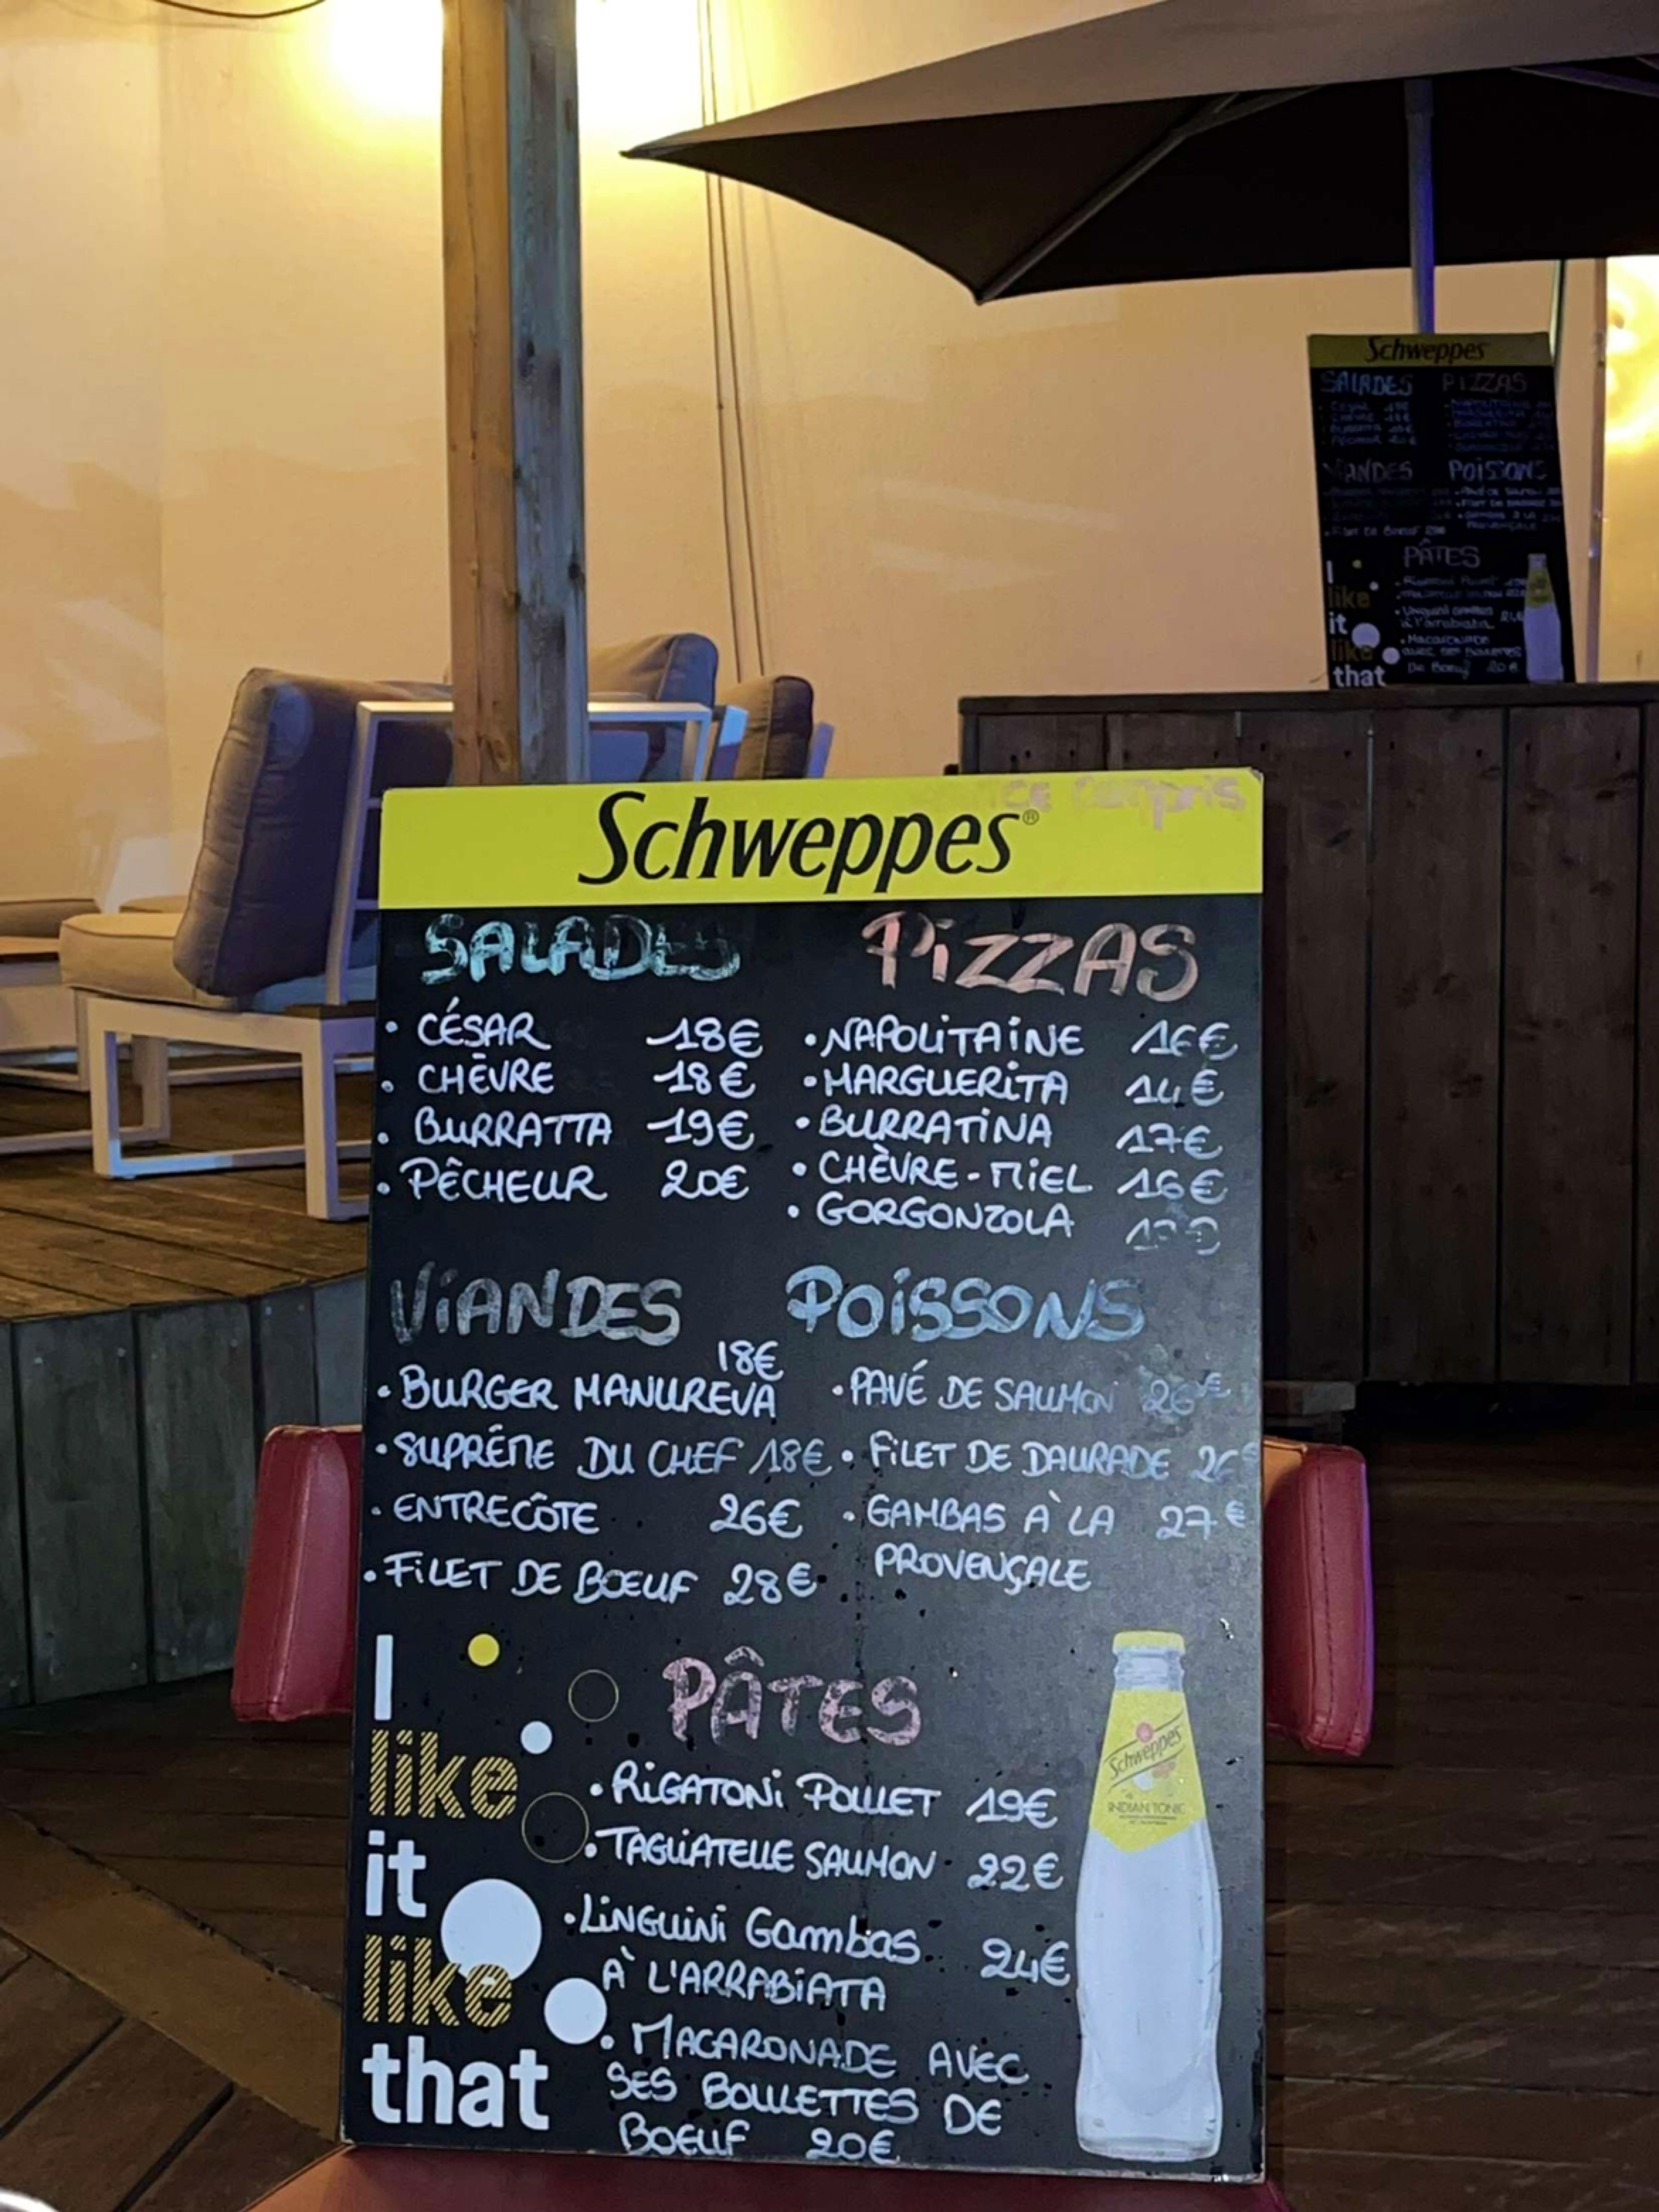 Schweppes
SALADES PIZZAS
VIANDES POISSONS
PÂTES
I
like
it
like
that
compris
Schweppes®
SALADES PIZZAS
• CÉSAR 18€ • NAPOLITAINE 16€
• CHÈVRE 18€ • MARGUERITA 14€
• BURRATTA 19€ • BURRATINA 17€
• PÊCHEUR 20€ • CHÈVRE-MIEL 16€
• GORGONZOLA
VIANDES POISSONS
18€
• BURGER MANUREVA • PAVÉ DE SAUMON 26€
• SUPRÊME DU CHEF 18€ • FILET DE DAURADE 26€
• ENTRECÔTE 26€ • GAMBAS À LA 27€
PROVENÇALE
• FILET DE BOEUF 28€
PÂTES
• RIGATONI POULET 19€
• TAGLIATELLE SAUMON 22€
• LINGUINI Gambas 24€
À L'ARRABIATA
• MACARONADE AVEC
SES BOULETTES DE
BOEUF 20€
I
like
it
like
that
Schweppes
INDIAN TONIC